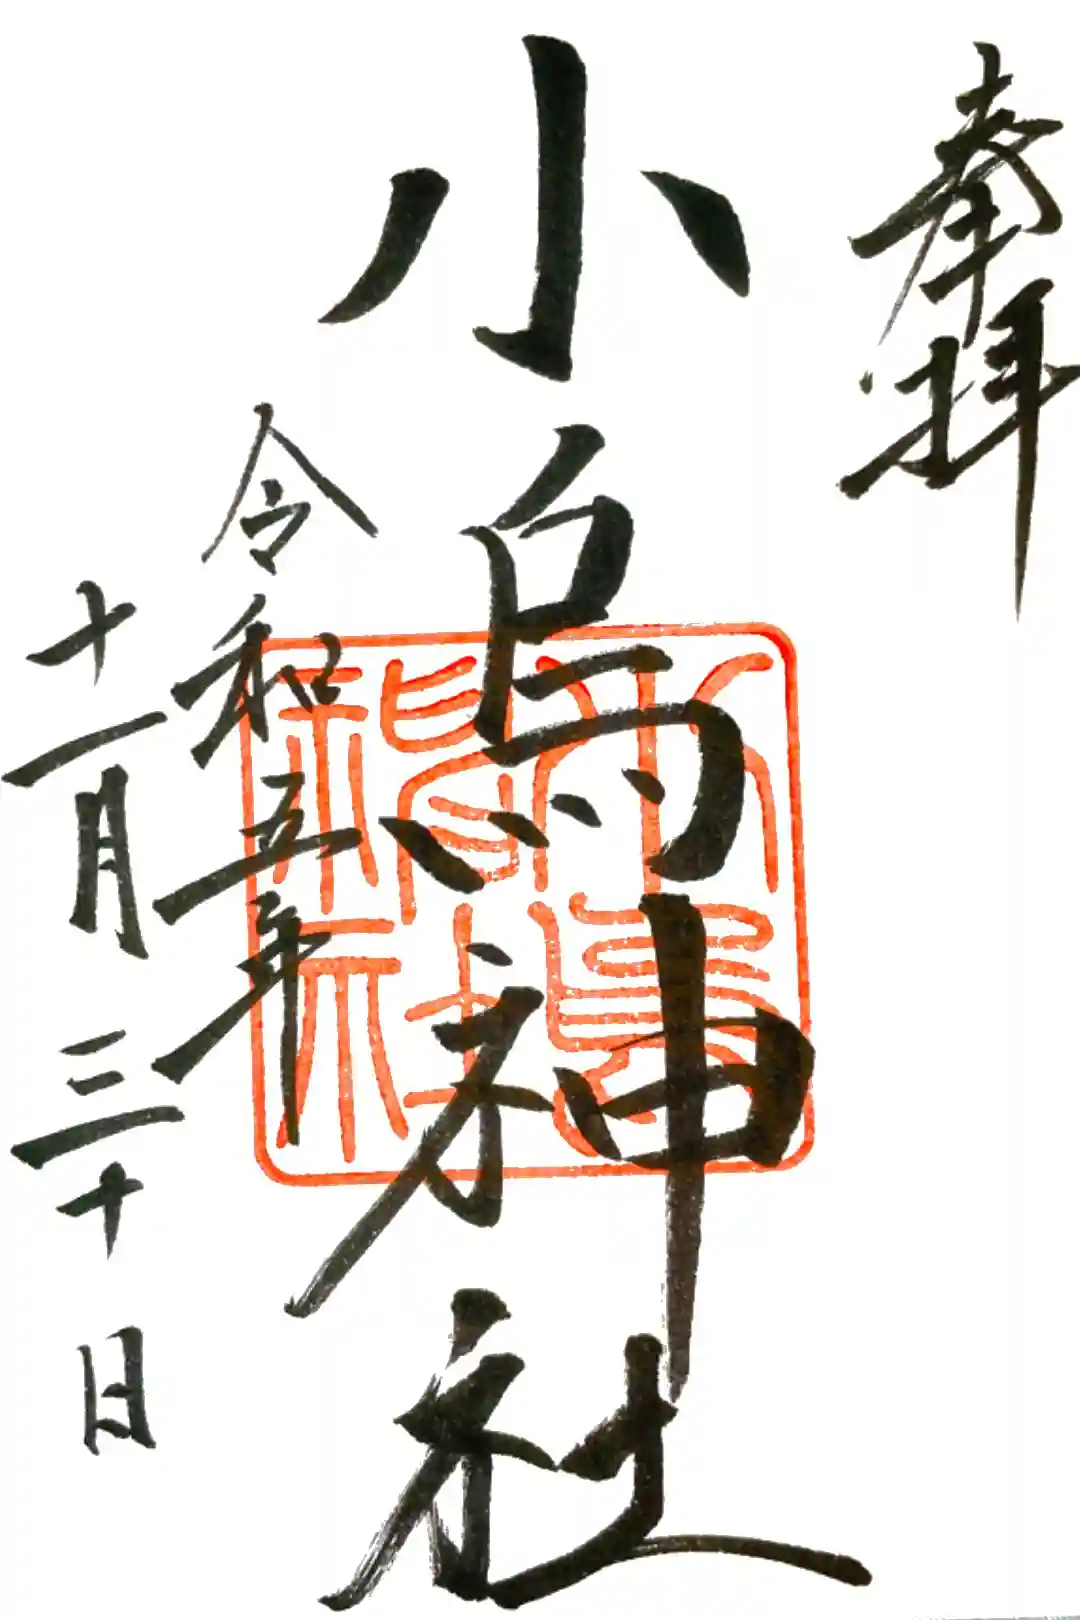 奉拝
小烏神社
令和五年
十一月三十日